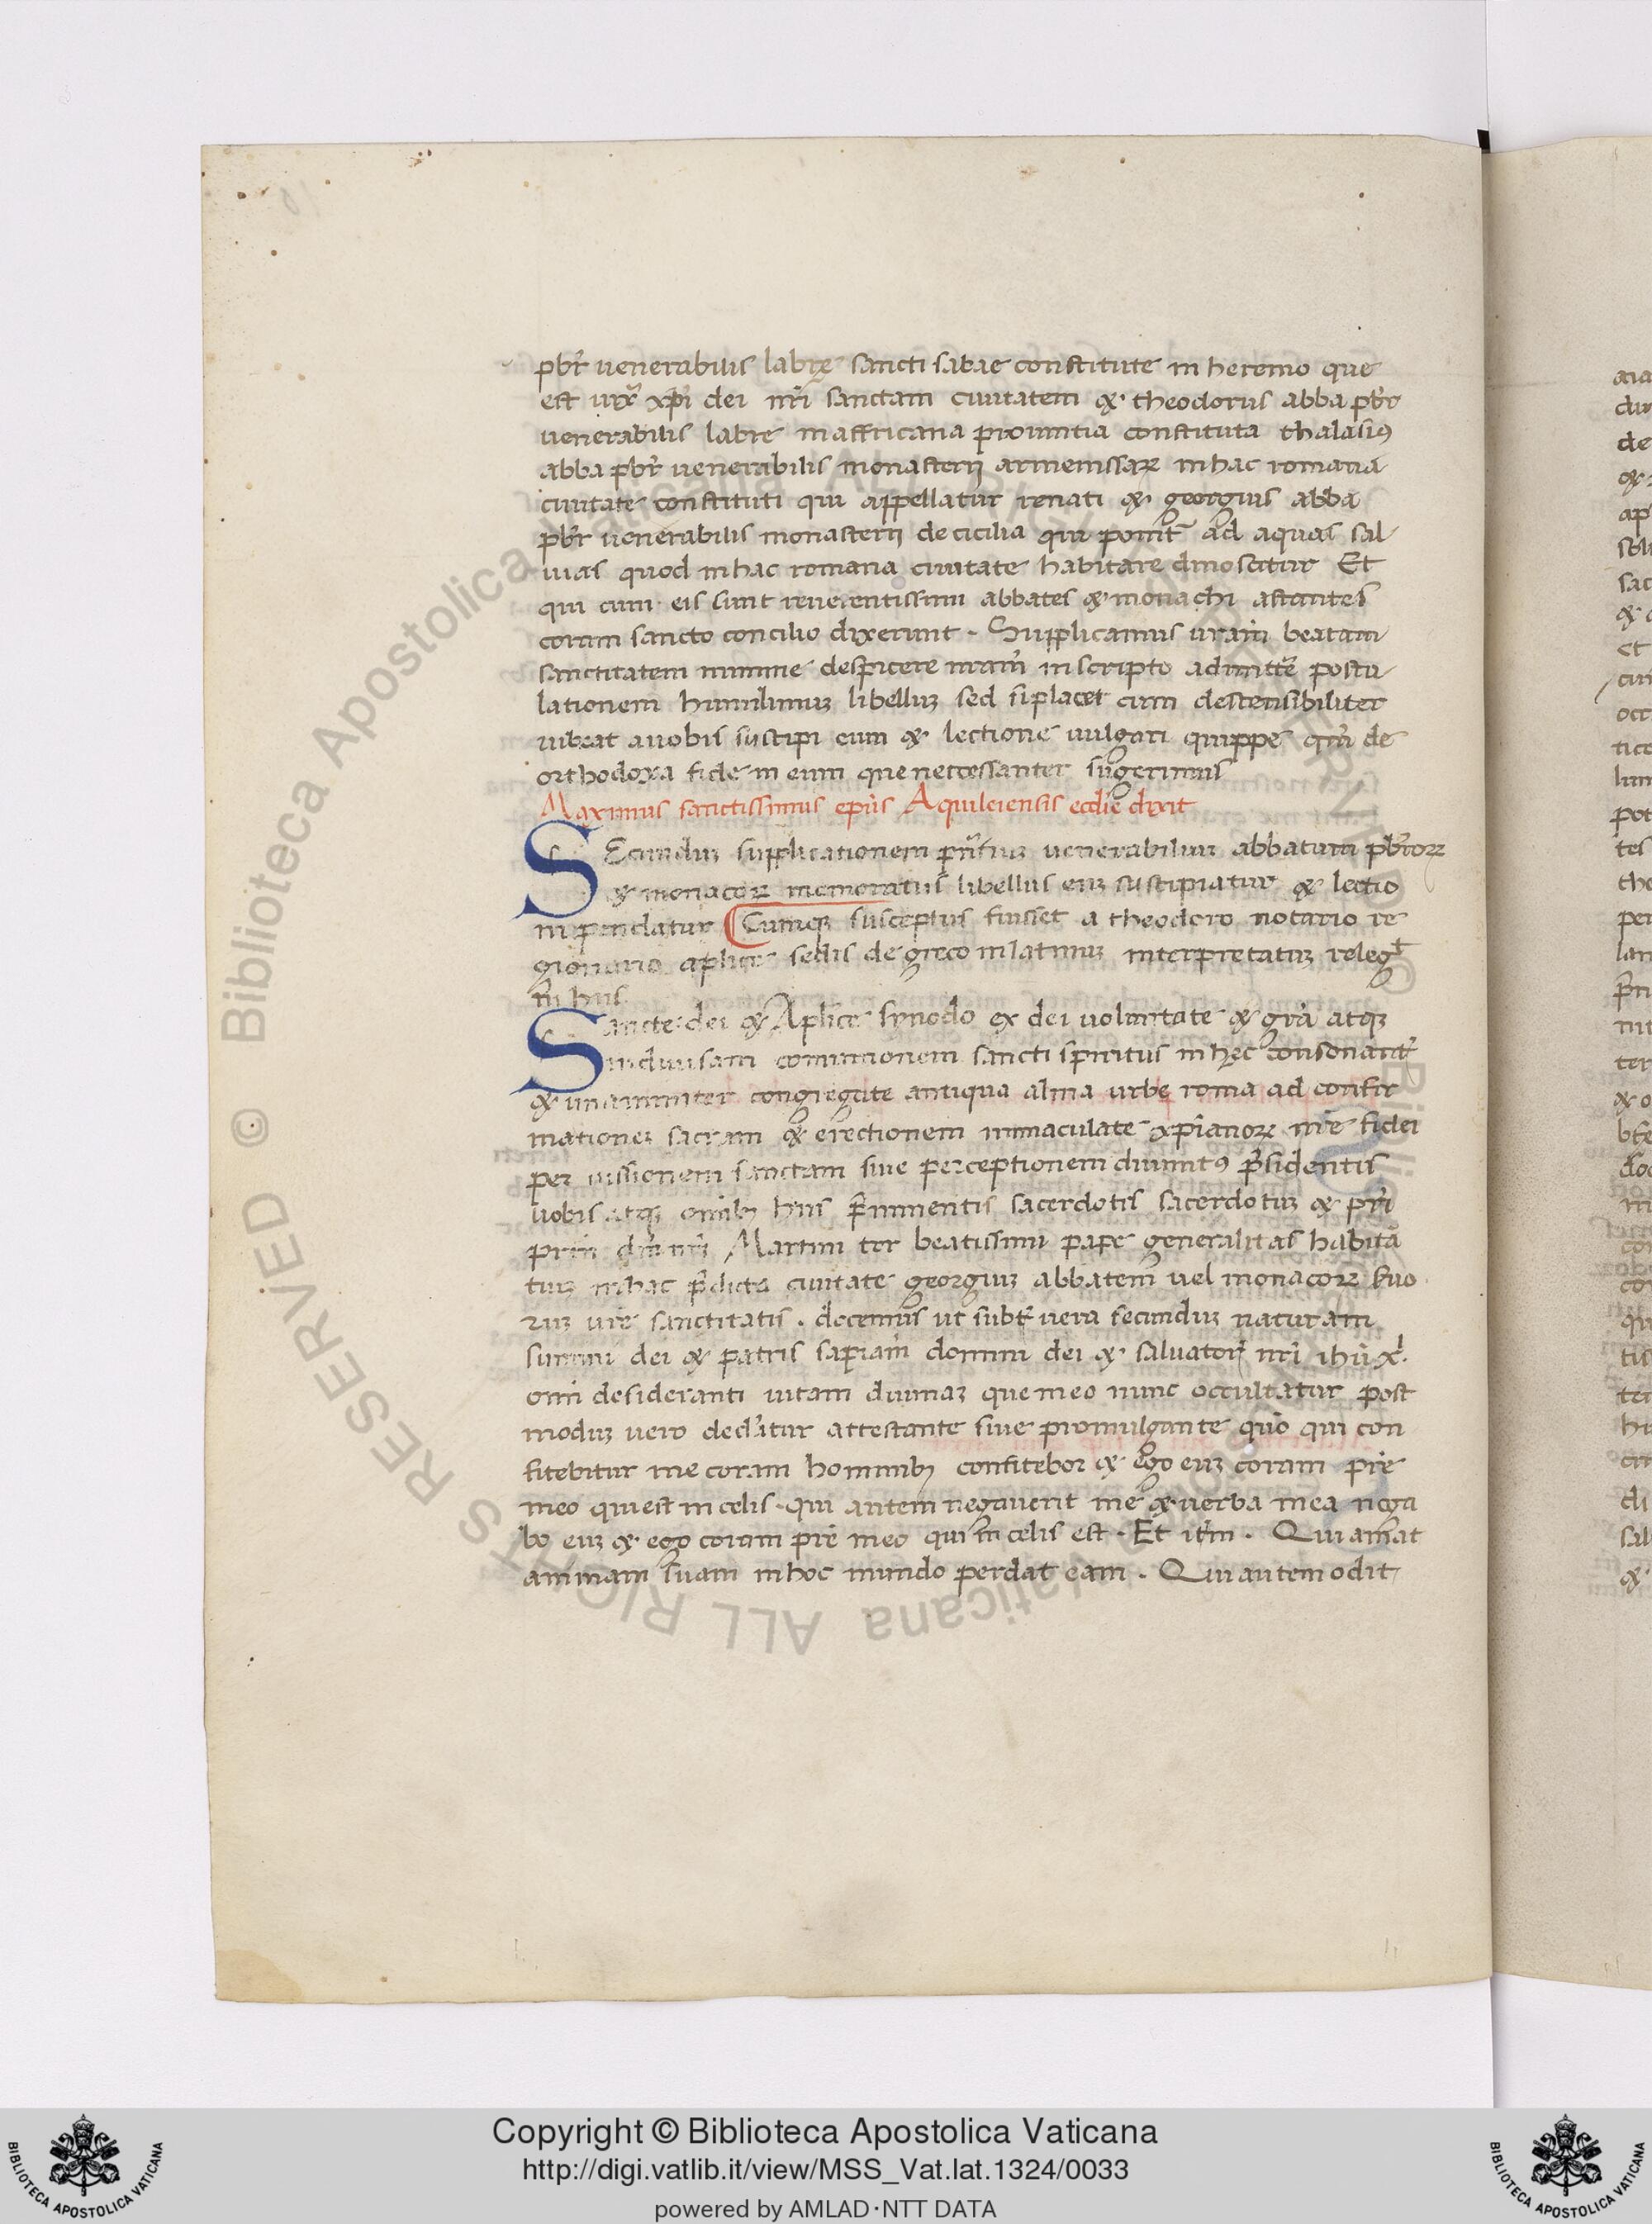 pbr̃ uenerabilis labrę sancti sabae constitute in heremo que
est iux̃ xp̃i dei nr̃i sanctam ciuitatem & theodorus abba pbr̃
uenerabilis labre in affricana prouintia constituta thalasiꝰ
abba pbr̃ uenerabilis monasterij armenissaꝝ in hac romana
ciuitate constituti qui appellatur renati & georgius abba
pbr̃ uenerabilis monasterij de cicilia qui ponit̃ ad aquas sal
uias quod in hac romana ciuitate habitare dinoscitur Et
qui cum eis sunt reuerentissimi abbates & monachi astantes
coram sancto concilio dixerunt. Supplicamus ur̃am beatam
sanctitatem minime despicere nr̃am in scripto admitte᷑ postu
lationem humilimuʒ libelluʒ sed si placet cum descensibiliter
iubeat a uobis suscipi eum & lectione uulgari quippe qm̃ de
orthodoxa fide in eum que necessariter sugerimus
Maximus sanctissimus ep̃us Aquileiensis eccl̃ie dixit
SEcunduʒ supplicationem pñtiuʒ uenerabiliuʒ abbatum pbr̃oroꝝ
& monacoꝝ memoratus libellus eiuʒ suscipiatur & lectio
ni pendatur Cumqʒ susceptus fuisset a theodoro notario re
gionario aplice sedis de greco in latinuʒ interpretatuʒ releg᷑t
in hiis
Sancte dei & Aplice synodo ex dei voluntate & gr̃a atqʒ
indiuisam comunionem sancti spiritus in hec consonant᷑
& unanimiter congregate antiqua alma urbe roma ad confir
mationeʒ sacram & erectionem immaculate xp̃ianoꝝ nr̃e fidei
per uissionem sanctam siue perceptionem diuinitꝰ p̃sidentis
uobis atqʒ omibʒ hiis p̃eminentis sacerdotis sacerdotuʒ & pr̃i
prim̃ dñi nr̃i Martini ter beatissimi pape generalitas habita
tuʒ in hac p̃dicta ciuitate georgiuʒ abbatem uel monacoꝝ seruo
ruʒ ur̃e sanctitatis. docemus ut subt᷑ uera secunduʒ naturam
summi dei & patris sapiam̃ domini dei & saluator̃ nr̃i ihũ x̃.
omi desideranti uitam diuinaʒ que meo nunc occultatur post
moduʒ uero declatur attestante siue promulgante quo qui con
fitebitur me coram hominibʒ confitebor & ego eiuʒ coram pr̃e
meo qui est in celis. qui autem negauerit me & uerba mea nega
bo eiuʒ & ego coram pr̃e meo qui in celis est. Et itm̃. Qui amat
animam suam in hoc mundo perdat eam. Qui autem odit
Copyright © Biblioteca Apostolica Vaticana
http://digi.vatlib.it/view/MSS_Vat.lat.1324/0033
powered by AMLAD·NTT DATA